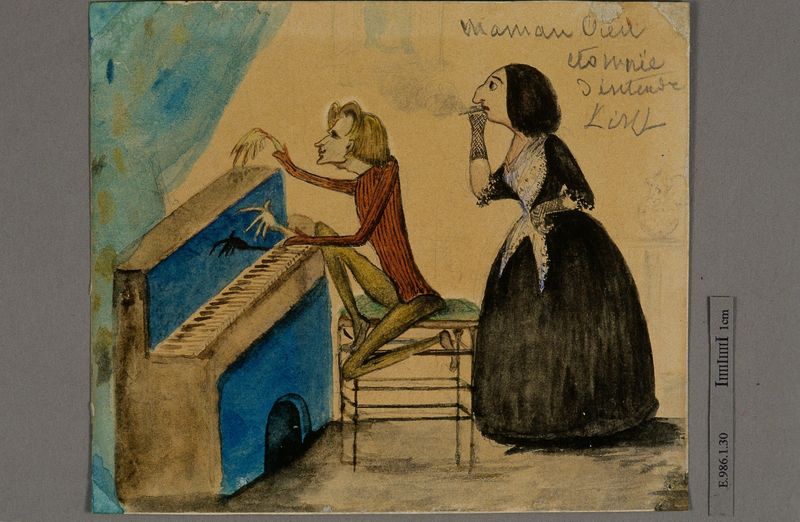 Maman bien
etonnée
d'entendre
Liszt
1cm
E.986.1.30